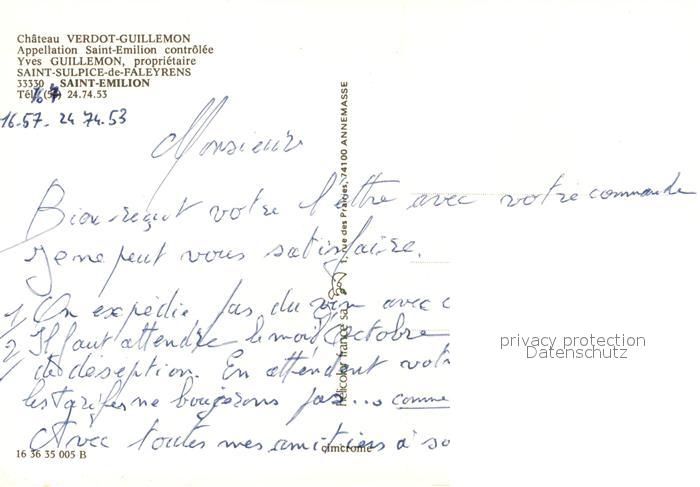 Château VERDOT-GUILLEMON
Appellation Saint-Emilion contrôlée
Yves GUILLEMON, propriétaire
SAINT-SULPICE-de-FALEYRENS
33330 SAINT-EMILION
Tél. (56) 24.74.53
16-57. 24 74.53
Monsieur
Bien reçut votre lettre avec votre commande
Je ne peut vous satisfaire.
1, On expédie pas du vin avec c
2 Il faut attendre le mois d'Octobre
déseption. En attendent votr
les tarifes ne bougerons pas... comme
Avec toutes mes amitiers à so
16 36 35 005 B
cimcrome
hélicolor france sa
1, rue des Prairies, 74100 ANNEMASSE
privacy protection
Datenschutz